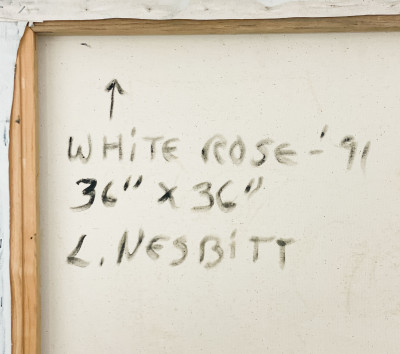 WHITE ROSE - '91
36" X 36"
L. NESBITT